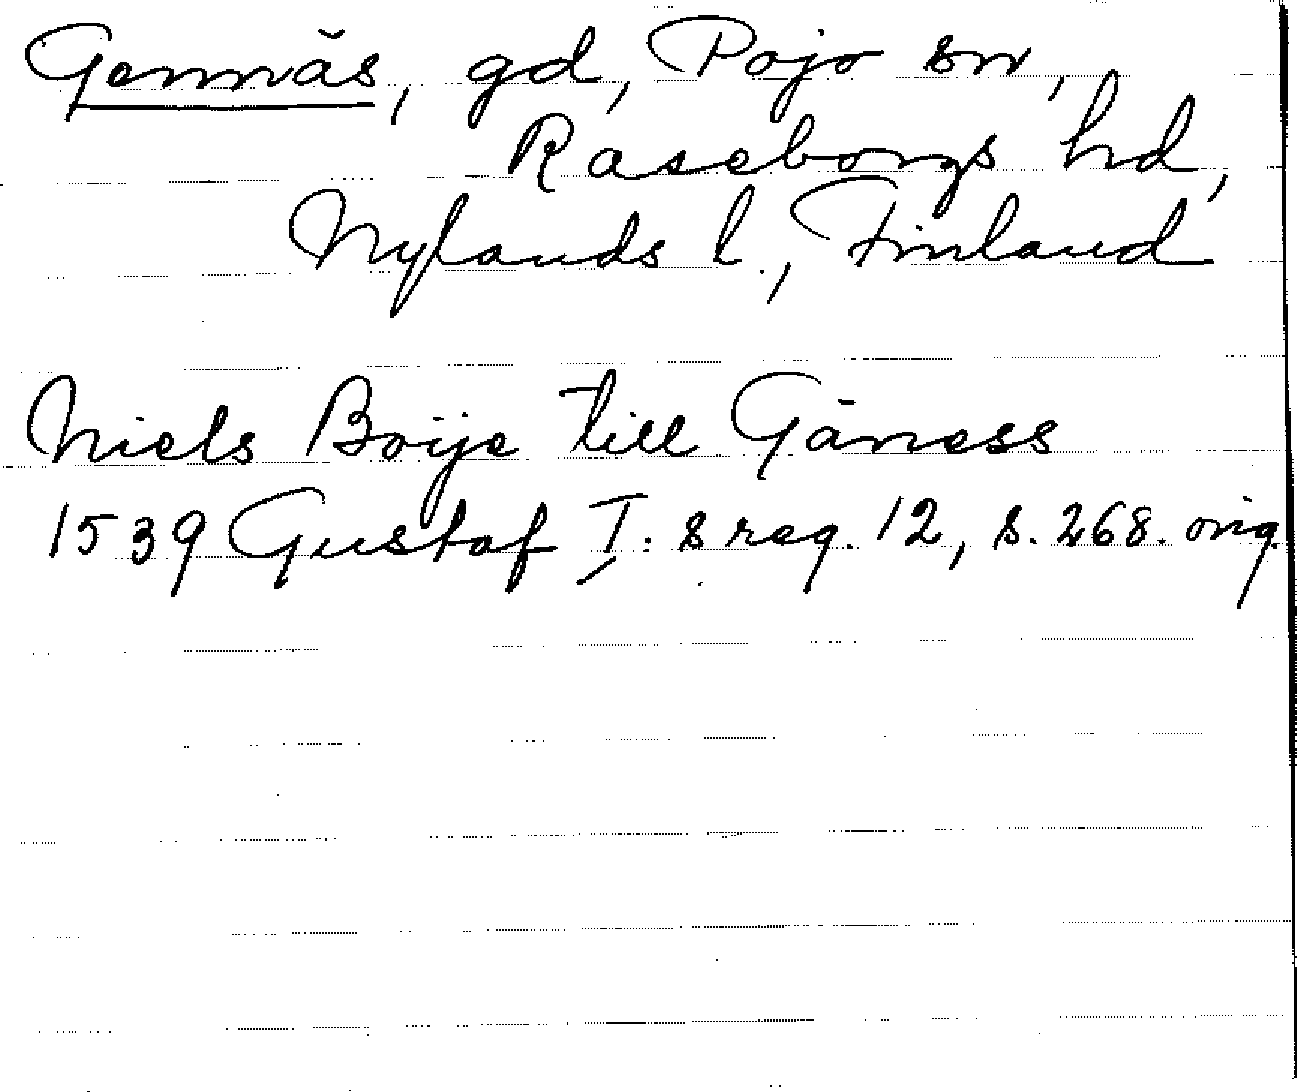 Gennäs, gd, Pojo sn,
Raseborgs hd,
Nylands l., Finland
Niels Boije till Gäness
1539 Gustaf I:s reg. 12, s. 268. orig.